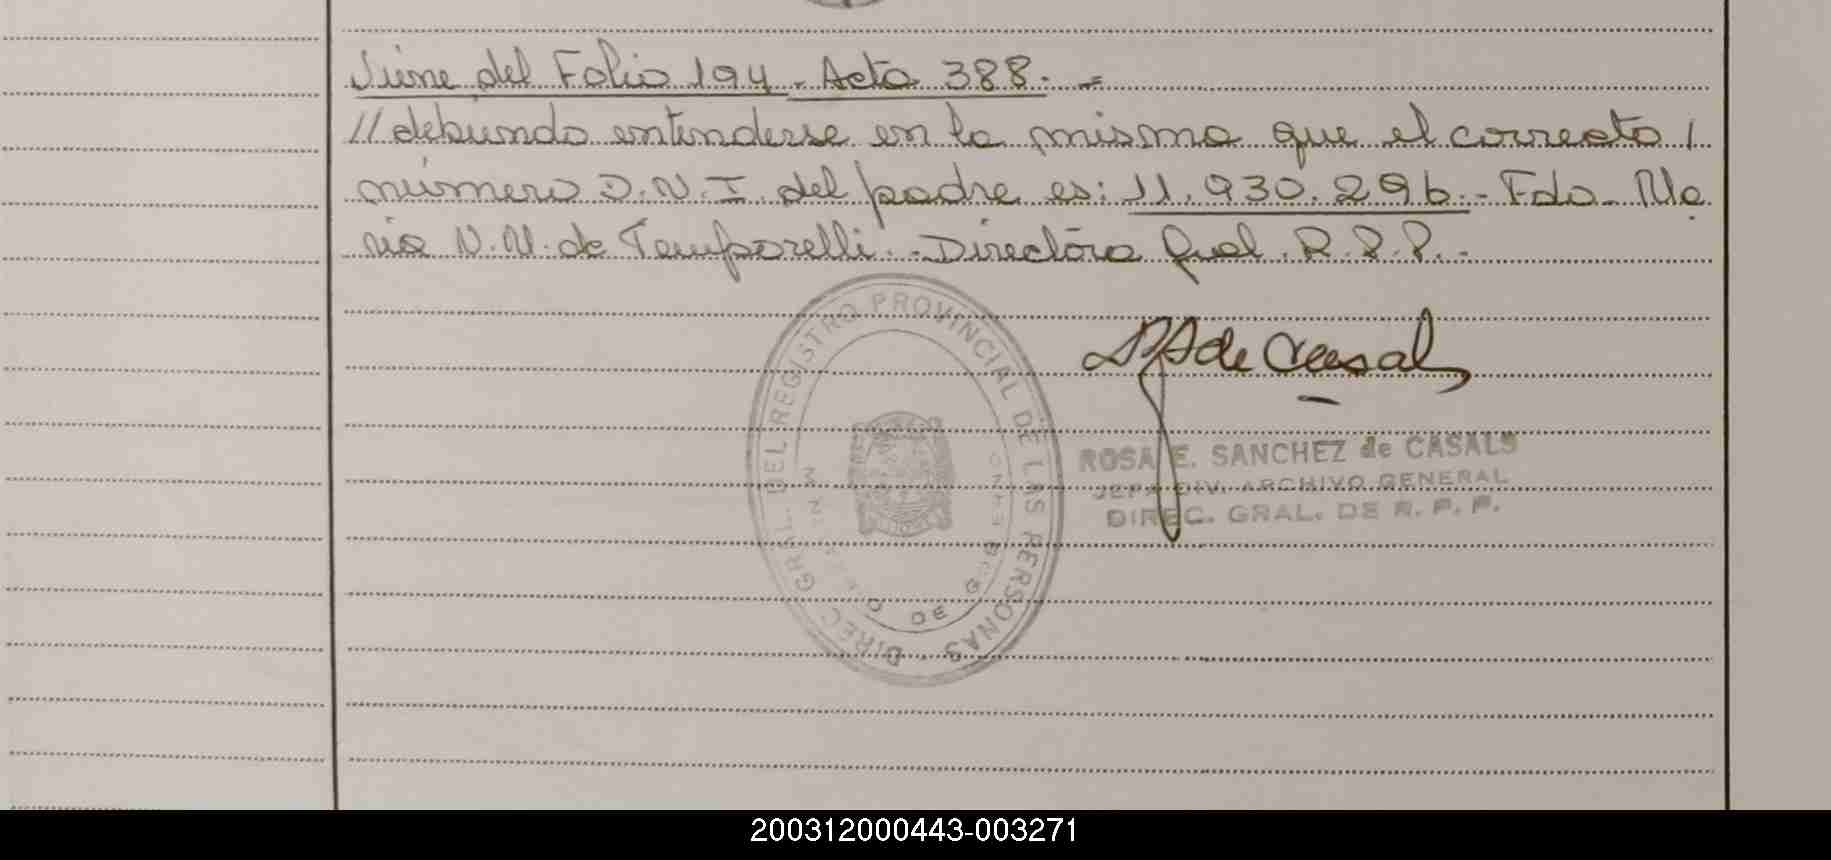 Viene del Folio 194 - Acta 388. =
// debiendo entenderse en la misma que el correcto /
número D.N.I. del padre es: 11.930.296.- Fdo. Ma
ria N.N. de Temporelli.- Directora Gral. R.P.P.-
DIREC. GRAL. DEL REGISTRO PROVINCIAL DE LAS PERSONAS
de Casals
ROSA E. SANCHEZ de CASALS
JEFA DIV. ARCHIVO GENERAL
DIREC. GRAL. DE R. P. P.
200312000443-003271